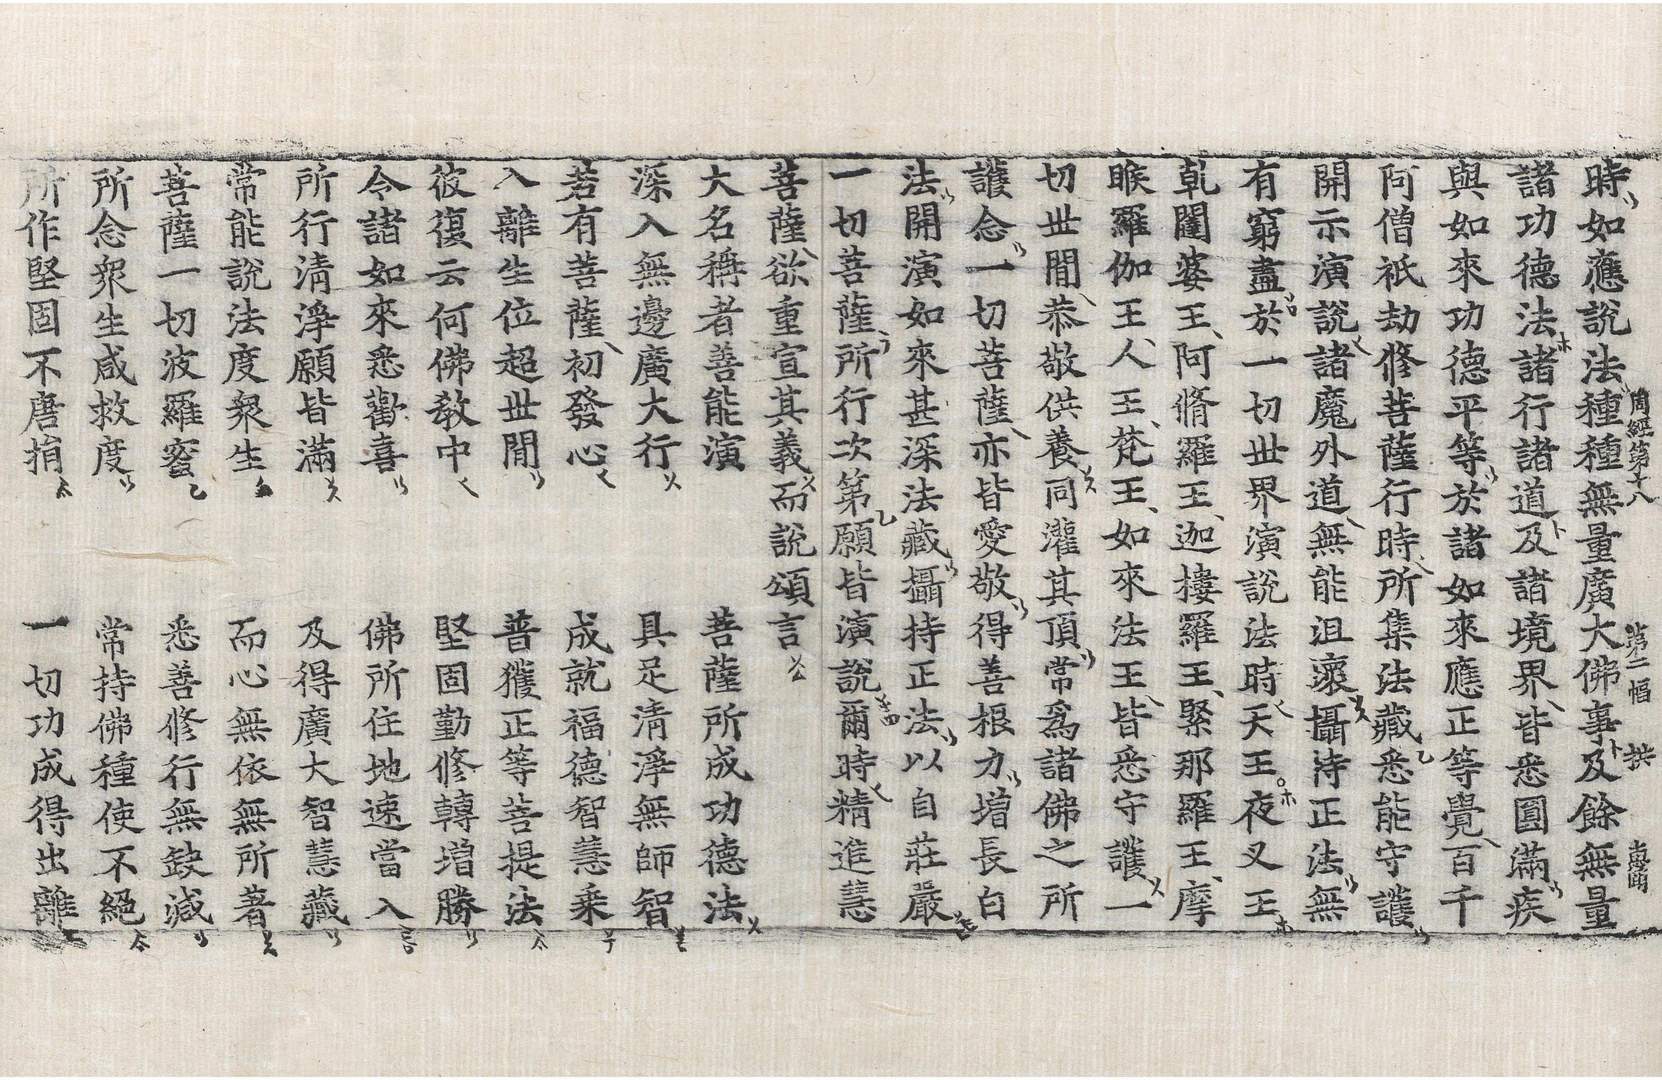 周經第十八 第二幅 拱
時如應說法種種無量廣大佛事及餘無量
諸功德法諸行諸道及諸境界皆悉圓滿疾
與如來功德平等於諸如來應正等覺百千
阿僧祇劫修菩薩行時所集法藏悉能守護
開示演說諸魔外道無能沮壞攝持正法無
有窮盡於一切世界演說法時天王夜叉王
乹闥婆王阿脩羅王迦樓羅王緊那羅王摩
睺羅伽王人王梵王如來法王皆悉守護一
切世間恭敬供養同灌其頂常爲諸佛之所
護念一切菩薩亦皆愛敬得善根力增長白
法開演如來甚深法藏攝持正法以自莊嚴
一切菩薩所行次第願皆演說爾時精進慧
菩薩欲重宣其義而說頌言
大名稱者善能演 菩薩所成功德法
深入無邊廣大行 具足清淨無師智
若有菩薩初發心 成就福德智慧乘
入離生位超世間 普獲正等菩提法
彼復云何佛教中 堅固勤修轉增勝
令諸如來悉歡喜 佛所住地速當入
所行清淨願皆滿 及得廣大智慧藏
常能說法度衆生 而心無依無所著
菩薩一切波羅蜜 悉善修行無缺減
所念衆生咸救度 常持佛種使不絕
所作堅固不唐捐 一切功成得出離